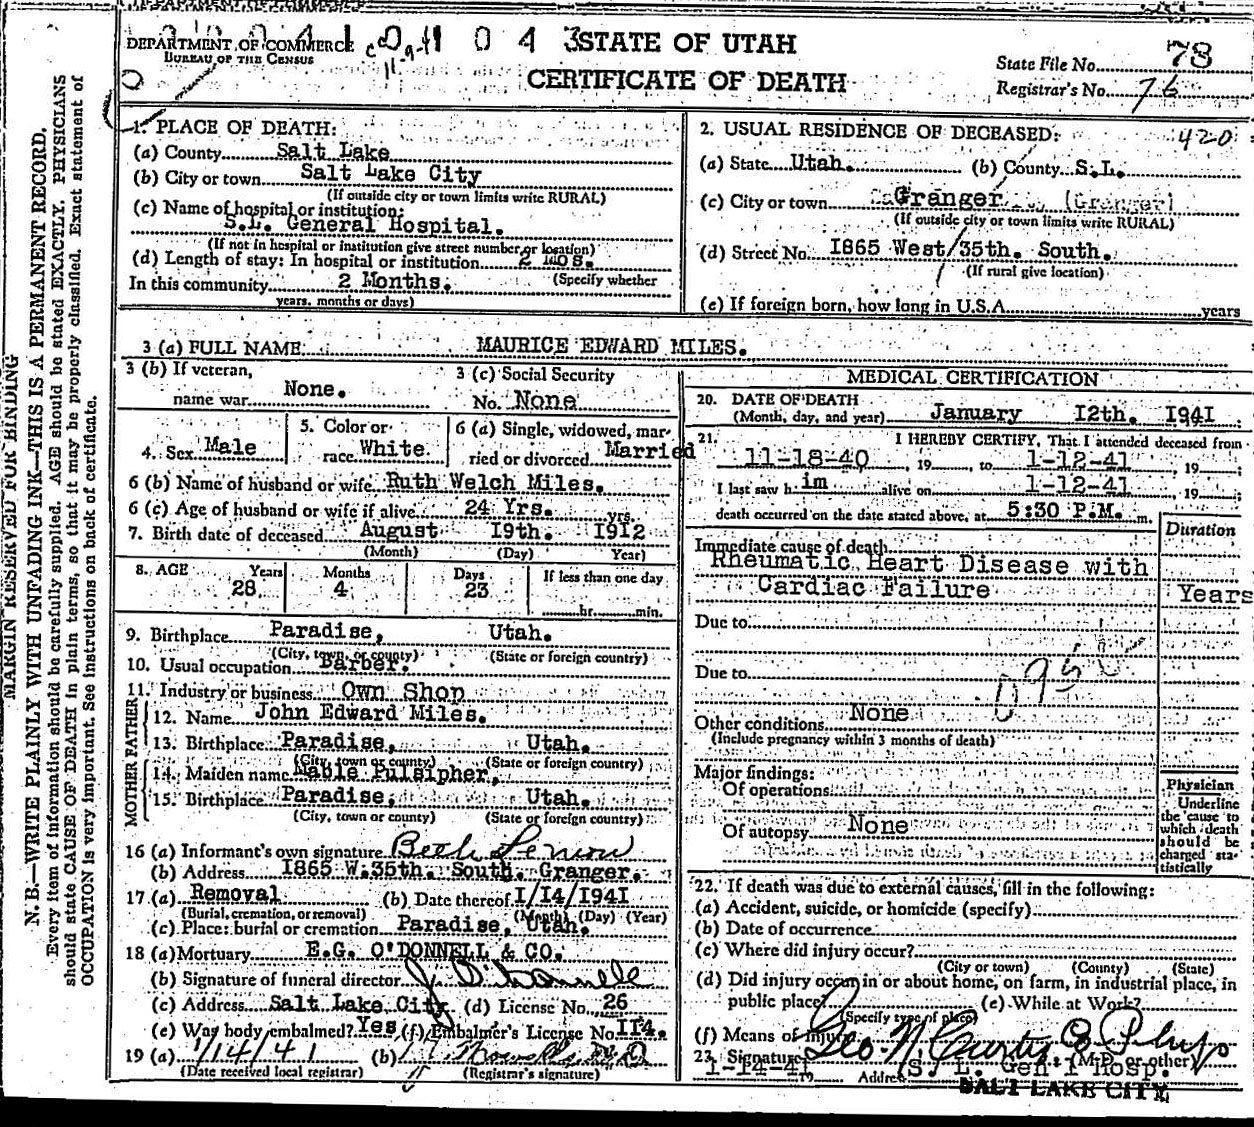 DEPARTMENT OF COMMERCE
BUREAU OF THE CENSUS
0 4 3
STATE OF UTAH
CERTIFICATE OF DEATH
State File No. 78
Registrar's No. 76
MARGIN RESERVED FOR BINDING
N. B.—WRITE PLAINLY WITH UNFADING INK—THIS IS A PERMANENT RECORD.
Every item of information should be carefully supplied. AGE should be stated EXACTLY. PHYSICIANS
should state CAUSE OF DEATH in plain terms, so that it may be properly classified. Exact statement of
OCCUPATION is very important. See instructions on back of certificate.
1. PLACE OF DEATH:
(a) County Salt Lake
(b) City or town Salt Lake City
(If outside city or town limits write RURAL)
(c) Name of hospital or institution:
S.L. General Hospital.
(If not in hospital or institution give street number or location)
(d) Length of stay: In hospital or institution 2 mos.
(Specify whether
In this community 2 Months.
years, months or days)
2. USUAL RESIDENCE OF DECEASED: 420
(a) State Utah. (b) County S.L.
(c) City or town Granger (Granger)
(If outside city or town limits write RURAL)
(d) Street No. 1865 West 35th. South.
(If rural give location)
(e) If foreign born, how long in U.S.A. years
3 (a) FULL NAME MAURICE EDWARD MILES.
3 (b) If veteran,
name war None.
3 (c) Social Security
No. None
4. Sex Male
5. Color or
race White.
6 (a) Single, widowed, mar-
ried or divorced Married
6 (b) Name of husband or wife Ruth Welch Miles.
6 (c) Age of husband or wife if alive 24 Yrs. yrs.
7. Birth date of deceased August 19th. 1912
(Month) (Day) Year)
8. AGE Years Months Days If less than one day
28 4 23 hr. min.
9. Birthplace Paradise, Utah.
(City, town, or county) (State or foreign country)
10. Usual occupation Barber.
11. Industry or business Own Shop
FATHER
12. Name John Edward Miles.
13. Birthplace Paradise, Utah.
(City, town or county) (State or foreign country)
MOTHER
14. Maiden name Mable Pulsipher,
15. Birthplace Paradise, Utah.
(City, town or county) (State or foreign country)
16 (a) Informant's own signature
(b) Address 1865 W.35th. South. Granger.
17 (a) Removal (b) Date thereof 1/14/1941
(Burial, cremation, or removal) (Month) (Day) (Year)
(c) Place: burial or cremation Paradise, Utah.
18 (a) Mortuary E.G. O'DONNELL & CO.
(b) Signature of funeral director J. O'Donnell
(c) Address Salt Lake City (d) License No. 26
(e) Was body embalmed? Yes (f) Embalmer's License No. 114.
19 (a) 1/14/41 (b)
(Date received local registrar) (Registrar's signature)
MEDICAL CERTIFICATION
20. DATE OF DEATH
(Month, day, and year) January 12th. 1941
21. I HEREBY CERTIFY, That I attended deceased from
11-18-40, 19 , to 1-12-41, 19 ;
I last saw h im alive on 1-12-41, 19 ;
death occurred on the date stated above, at 5:30 P.M. m.
Duration
Immediate cause of death
Rheumatic Heart Disease with
Cardiac Failure Years
Due to
Due to
Other conditions None
(Include pregnancy within 3 months of death)
Major findings:
Of operations
Of autopsy None
Physician
Underline
the cause to
which death
should be
charged sta-
tistically
22. If death was due to external causes, fill in the following:
(a) Accident, suicide, or homicide (specify)
(b) Date of occurrence
(c) Where did injury occur?
(City or town) (County) (State)
(d) Did injury occur in or about home, on farm, in industrial place, in
public place? (e) While at Work?
(Specify type of place)
(f) Means of injury
23. Signature Geo N Curtis (M.D. or other)
1-14-41 Address S. L. Gen'l Hosp.
SALT LAKE CITY